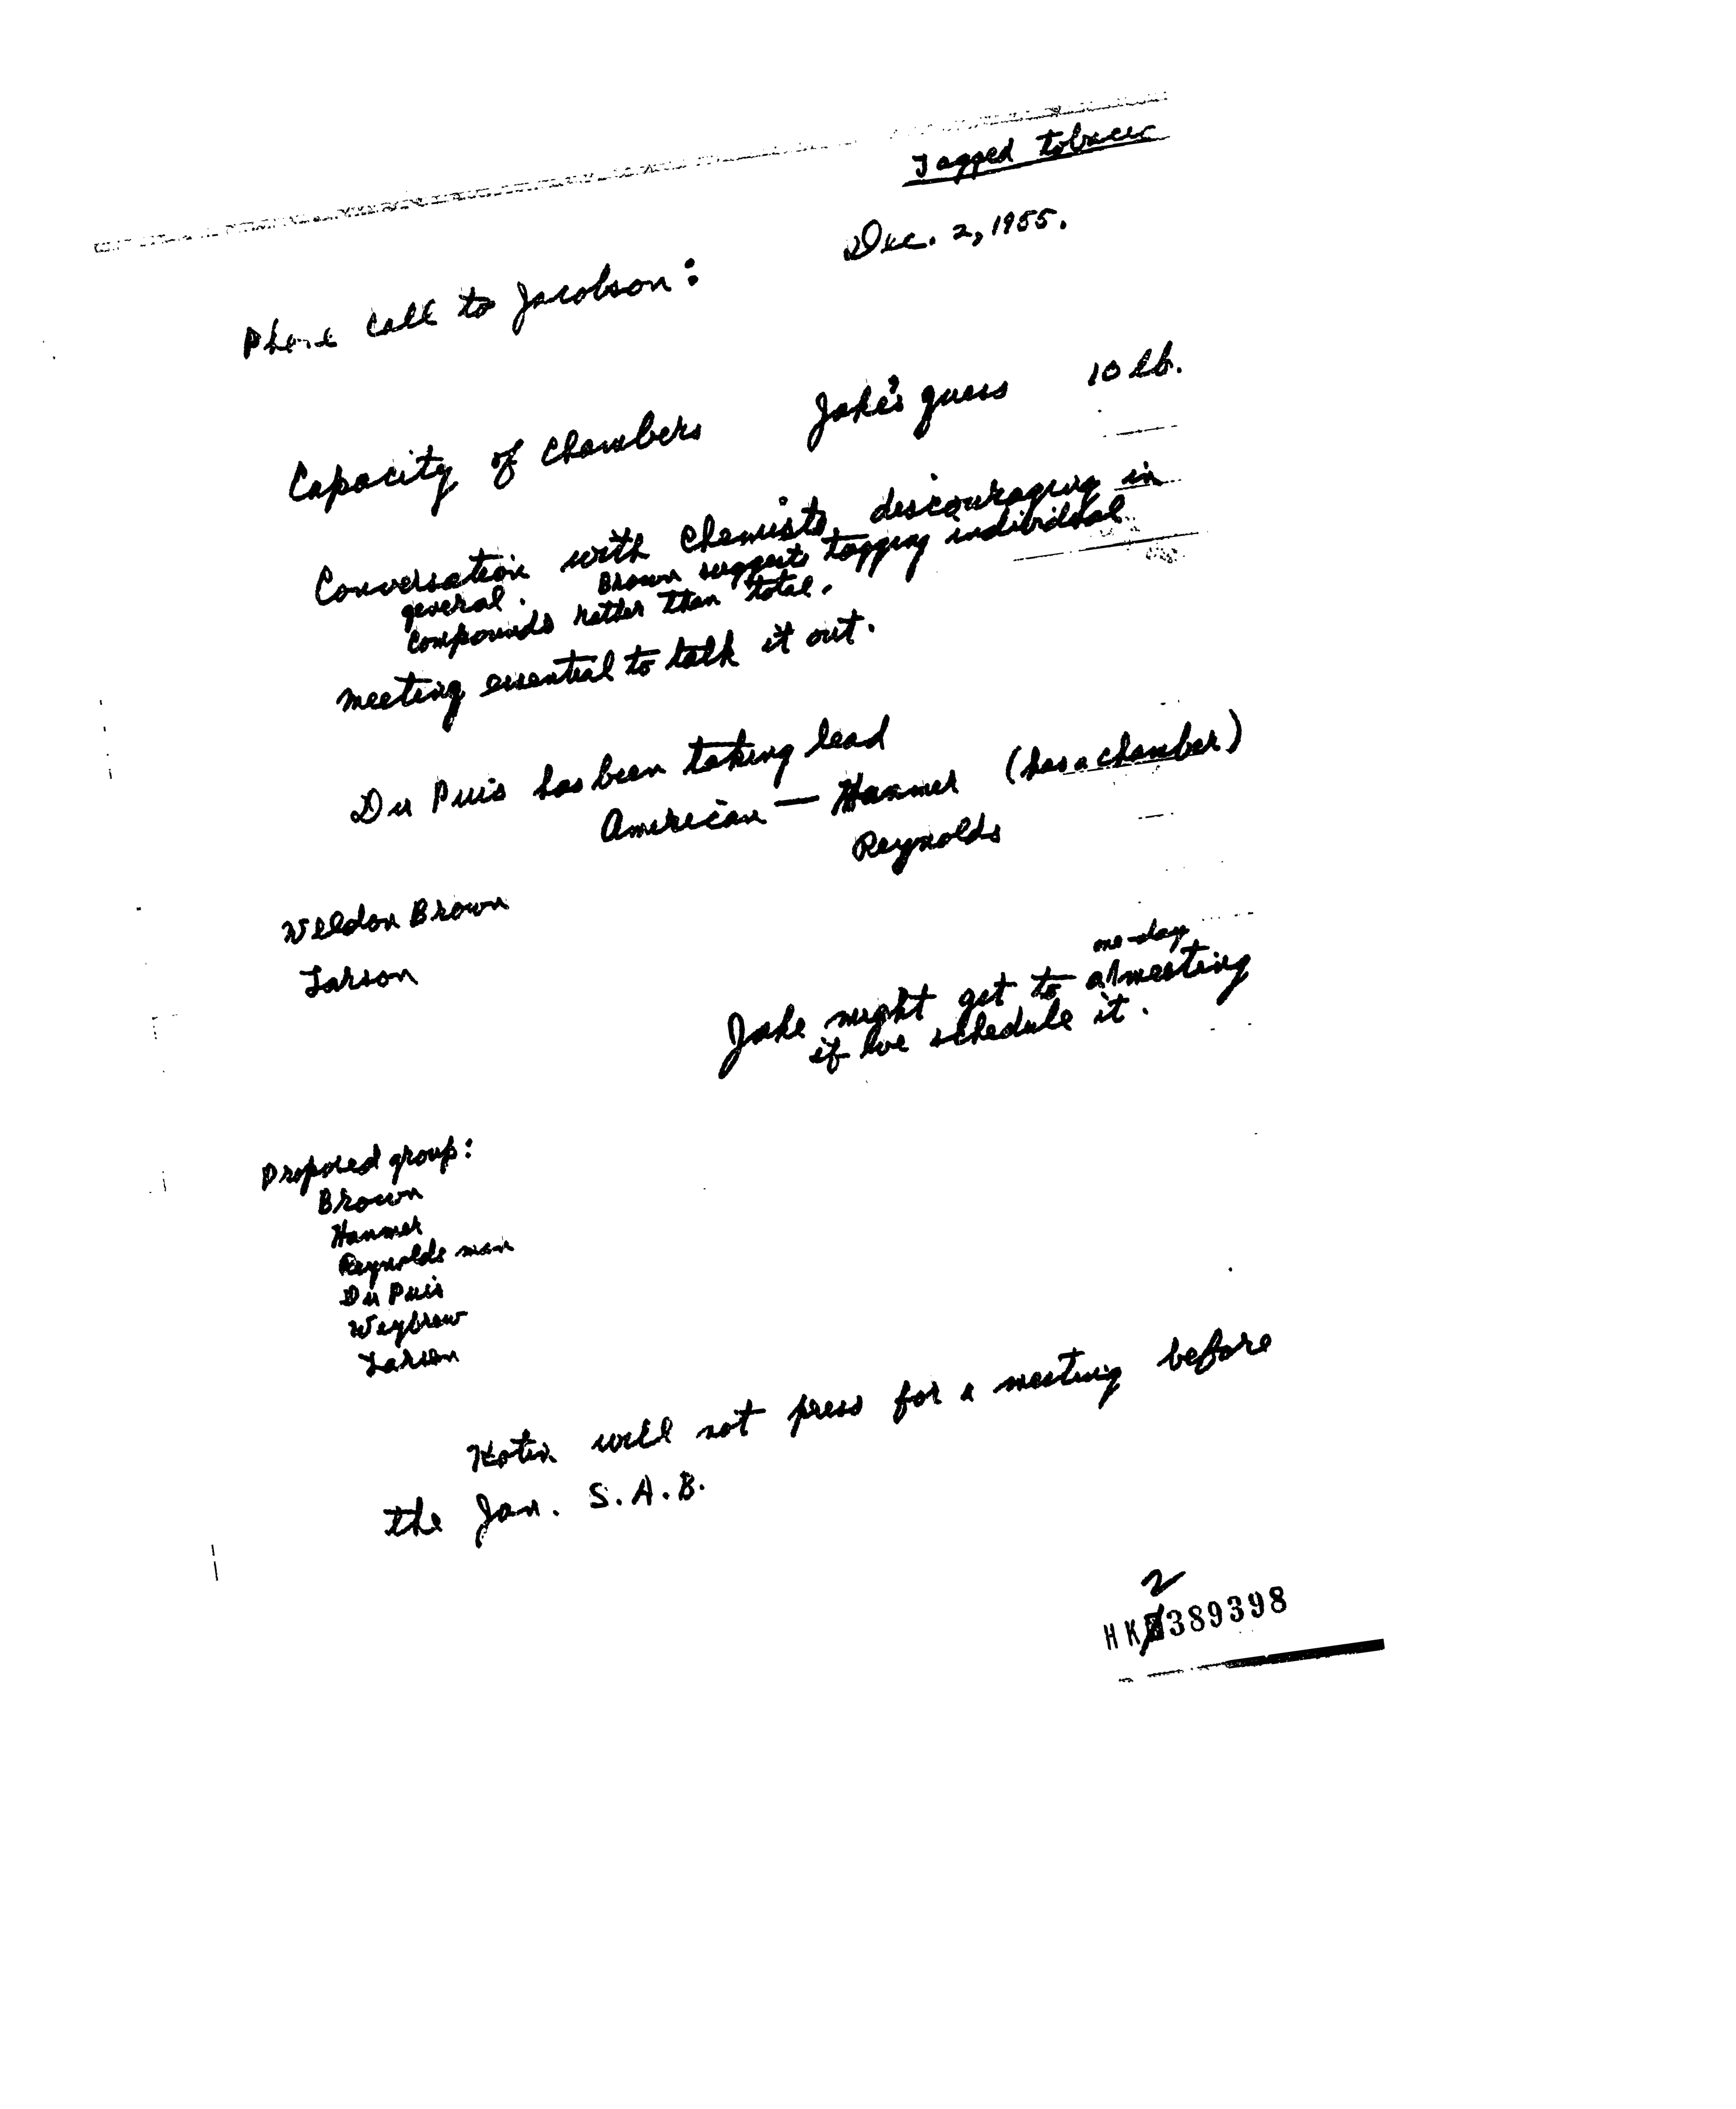 Tagged tobacco
Dec. 2, 1955.
Phone call to Jacobson:
Capacity of chambers Jake's guess 10 lb.
Conversation with chemists, discouraging in
general. Brown suggests tagging individual
compounds rather than total.
meeting essential to talk it out.
Du Puis has been taking lead
American — Hanmer (has a chamber)
Reynolds
Weldon Brown
Larson
one-day
Jake might get to a meeting
if we schedule it.
Proposed group:
Brown
Hanmer
Reynolds man
Du Puis
Weybrew
Larson
Kotin will not press for a meeting before
the Jan. S.A.B.
2
HK 389398